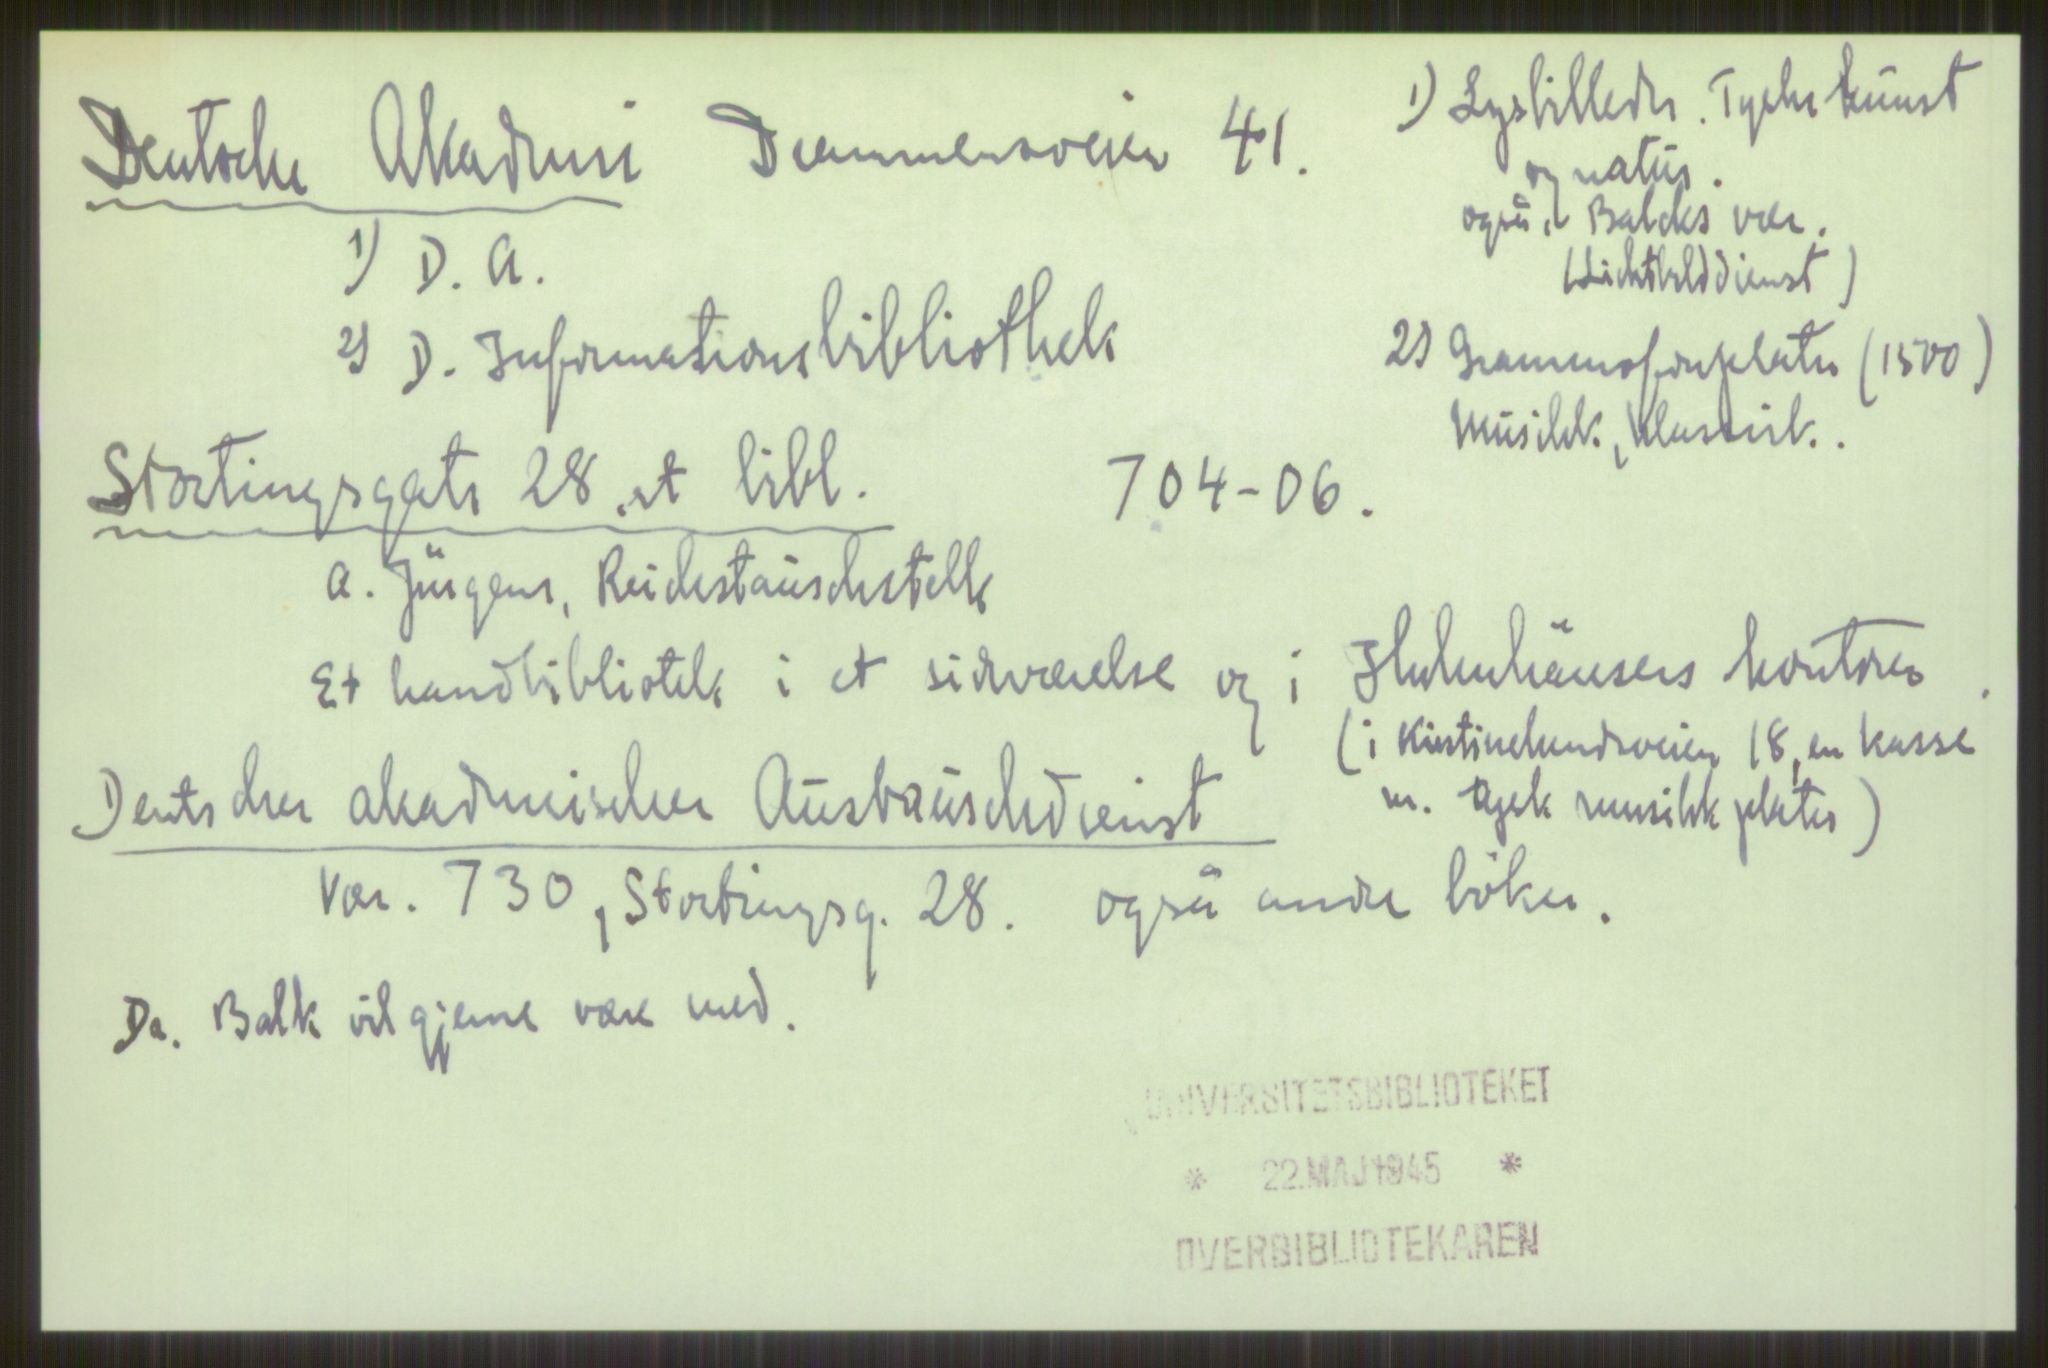 Deutsche Akademi Drammensveien 41.
1) D. A.
2) D. Informationsbibliothek
1) Lysbilleder. Tyske kunst
og natur.
også i Balcks vær.
(Lichtbilddienst)
2) Grammofonplater (1500)
Musikk, klassisk.
Stortingsgate 28, et bibl. 704-06.
A. Jürgens, Reichstauschstelle
Et handbibliotek i et sideværelse og i kontorer.
(i Kristinelundveien 18, en kasse
m. tysk musikk plater)
Deutscher akademischer Austauschdienst
Vær. 730, Stortingsg. 28. også andre böker.
Da. Balk vil gjerne være med.
UNIVERSITETSBIBLIOTEKET
* 22. MAJ 1945 *
OVERBIBLIOTEKAREN